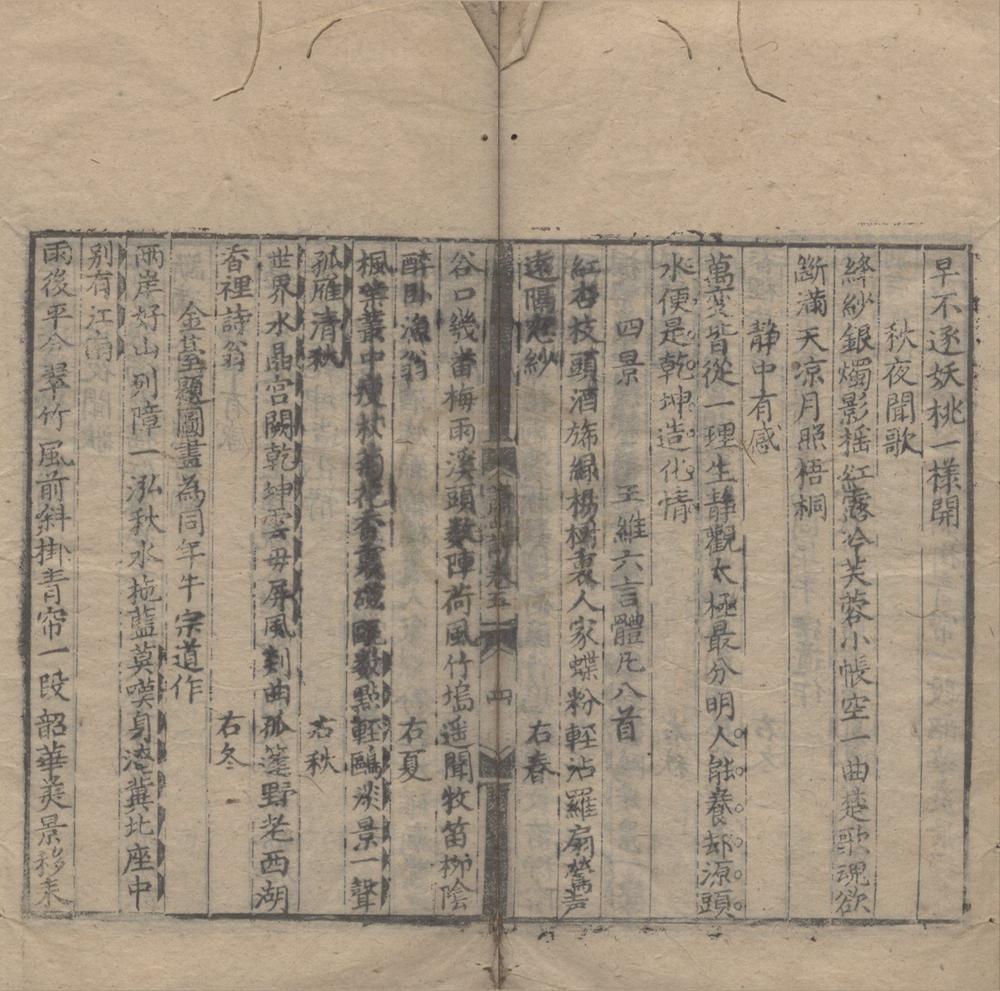 早不逐妖桃一樣開
秋夜聞歌
絳紗銀燭影揺紅露冷芙蓉小帳空一曲楚歌魂欲
斷滿天凉月照梧桐
静中有感
萬岁皆從一理生静觀太極最分明人能養却源頭
水便是乾坤造化情
四景 王維六言體凡八首
紅杏枝頭酒斾緑楊樹裏人家蝶粉輕沾羅扇鶯声
遠隔窓紗 右春
谷口幾番梅雨溪頭数陣荷風竹塢遥聞牧笛柳陰
醉卧漁翁 右夏
楓葉叢中瘦杖菊花香裏數點輕鷗淡景一聲
孤雁清秋 右秋
世界水晶宫闕乾坤雲母屏風剡曲孤篷野老西湖
香裡詩翁 右冬
金臺題圖畫為同年牛宗道作
兩岸好山列障一泓秋水拖藍莫嘆身淹冀北座中
别有江南
雨後平分翠竹風前斜掛青帘一段韶華美景移来
蕭山詩卷五 四